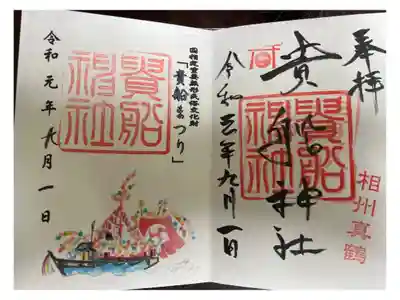 奉拝
相州真鶴
貴船神社
貴船
神社
令和元年九月一日
国指定重要無形民俗文化財
「貴船まつり」
貴船
神社
令和元年九月一日